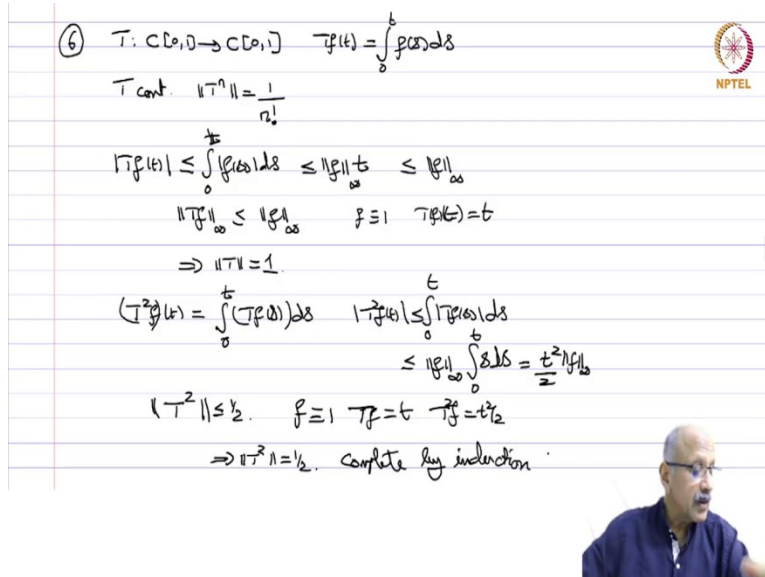 ⑥ T: C[0,1] → C[0,1] Tf(t) = ∫₀ᵗ f(s)ds
NPTEL
T cont. ‖Tⁿ‖ = 1/n!
|Tf(t)| ≤ ∫₀ᵗ |f(s)|ds ≤ ‖f‖∞ t ≤ ‖f‖∞
‖Tf‖∞ ≤ ‖f‖∞ f ≡ 1 Tf(t) = t
⇒ ‖T‖ = 1.
(T²f)(t) = ∫₀ᵗ (Tf(s))ds |T²f(t)| ≤ ∫₀ᵗ |Tf(s)|ds
≤ ‖f‖∞ ∫₀ᵗ s ds = t²/2 ‖f‖∞
‖T²‖ ≤ ½. f ≡ 1 Tf = t T²f = t²/2
⇒ ‖T²‖ = ½. Complete by induction.